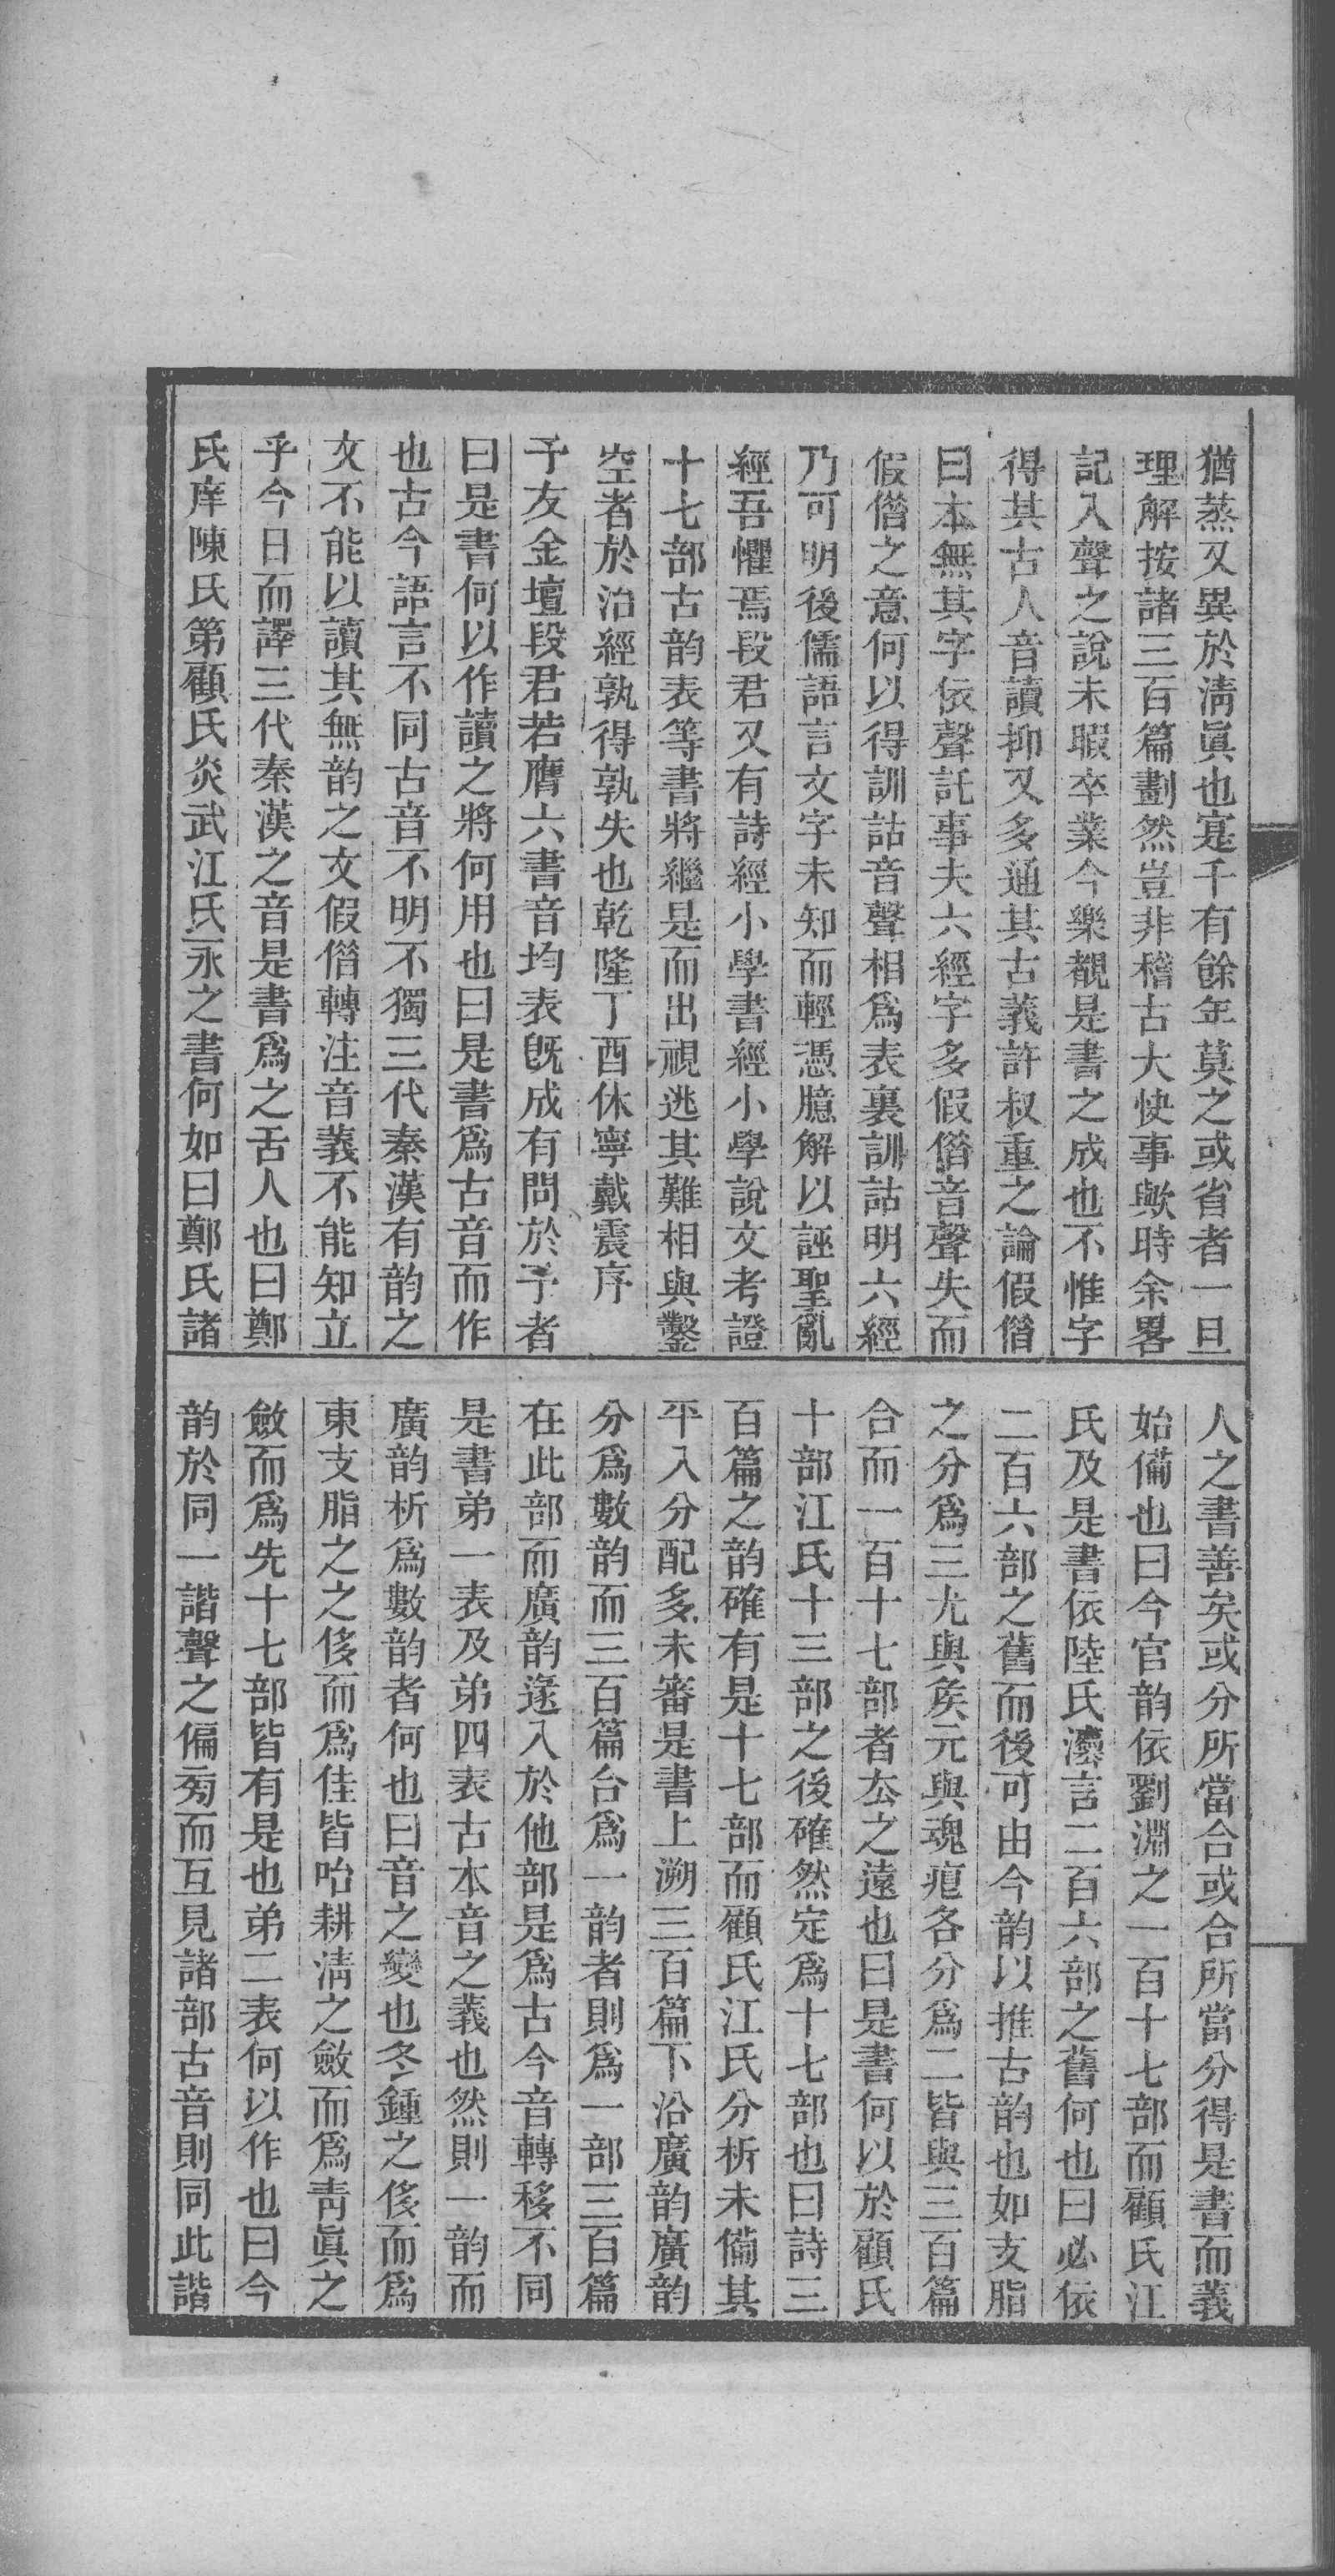 猶蒸又異於淸眞也寔千有餘年莫之或省者一旦
理解按諸三百篇劃然豈非稽古大快事歟時余畧
記入聲之說未暇卒業今樂覩是書之成也不惟字
得其古人音讀抑又多通其古義許叔重之論假借
曰本無其字依聲託事夫六經字多假借音聲失而
假借之意何以得訓詁音聲相爲表裏訓詁明六經
乃可明後儒語言文字未知而輕憑臆解以誣聖亂
經吾懼焉段君又有詩經小學書經小學說文考證
十七部古韵表等書將繼是而出視逃其難相與鑿
空者於治經孰得孰失也乾隆丁酉休寧戴震序
予友金壇段君若膺六書音均表旣成有問於予者
曰是書何以作讀之將何用也曰是書爲古音而作
也古今語言不同古音不明不獨三代秦漢有韵之
文不能以讀其無韵之文假借轉注音義不能知立
乎今日而譯三代秦漢之音是書爲之舌人也曰鄭
氏庠陳氏第顧氏炎武江氏永之書何如曰鄭氏諸
人之書善矣或分所當合或合所當分得是書而義
始備也曰今官韵依劉淵之一百十七部而顧氏江
氏及是書依陸氏灋言二百六部之舊何也曰必依
二百六部之舊而後可由今韵以推古韵也如支脂
之分爲三尤與矦元與魂痕各分爲二皆與三百篇
合而一百十七部者厺之遠也曰是書何以於顧氏
十部江氏十三部之後確然定爲十七部也曰詩三
百篇之韵確有是十七部而顧氏江氏分析未備其
平入分配多未審是書上溯三百篇下沿廣韵廣韵
分爲數韵而三百篇合爲一韵者則爲一部三百篇
在此部而廣韵遂入於他部是爲古今音轉移不同
是書弟一表及弟四表古本音之義也然則一韵而
廣韵析爲數韵者何也曰音之變也冬鍾之侈而爲
東支脂之之侈而爲佳皆咍耕淸之斂而爲靑眞之
斂而爲先十七部皆有是也弟二表何以作也曰今
韵於同一諧聲之偏旁而互見諸部古音則同此諧